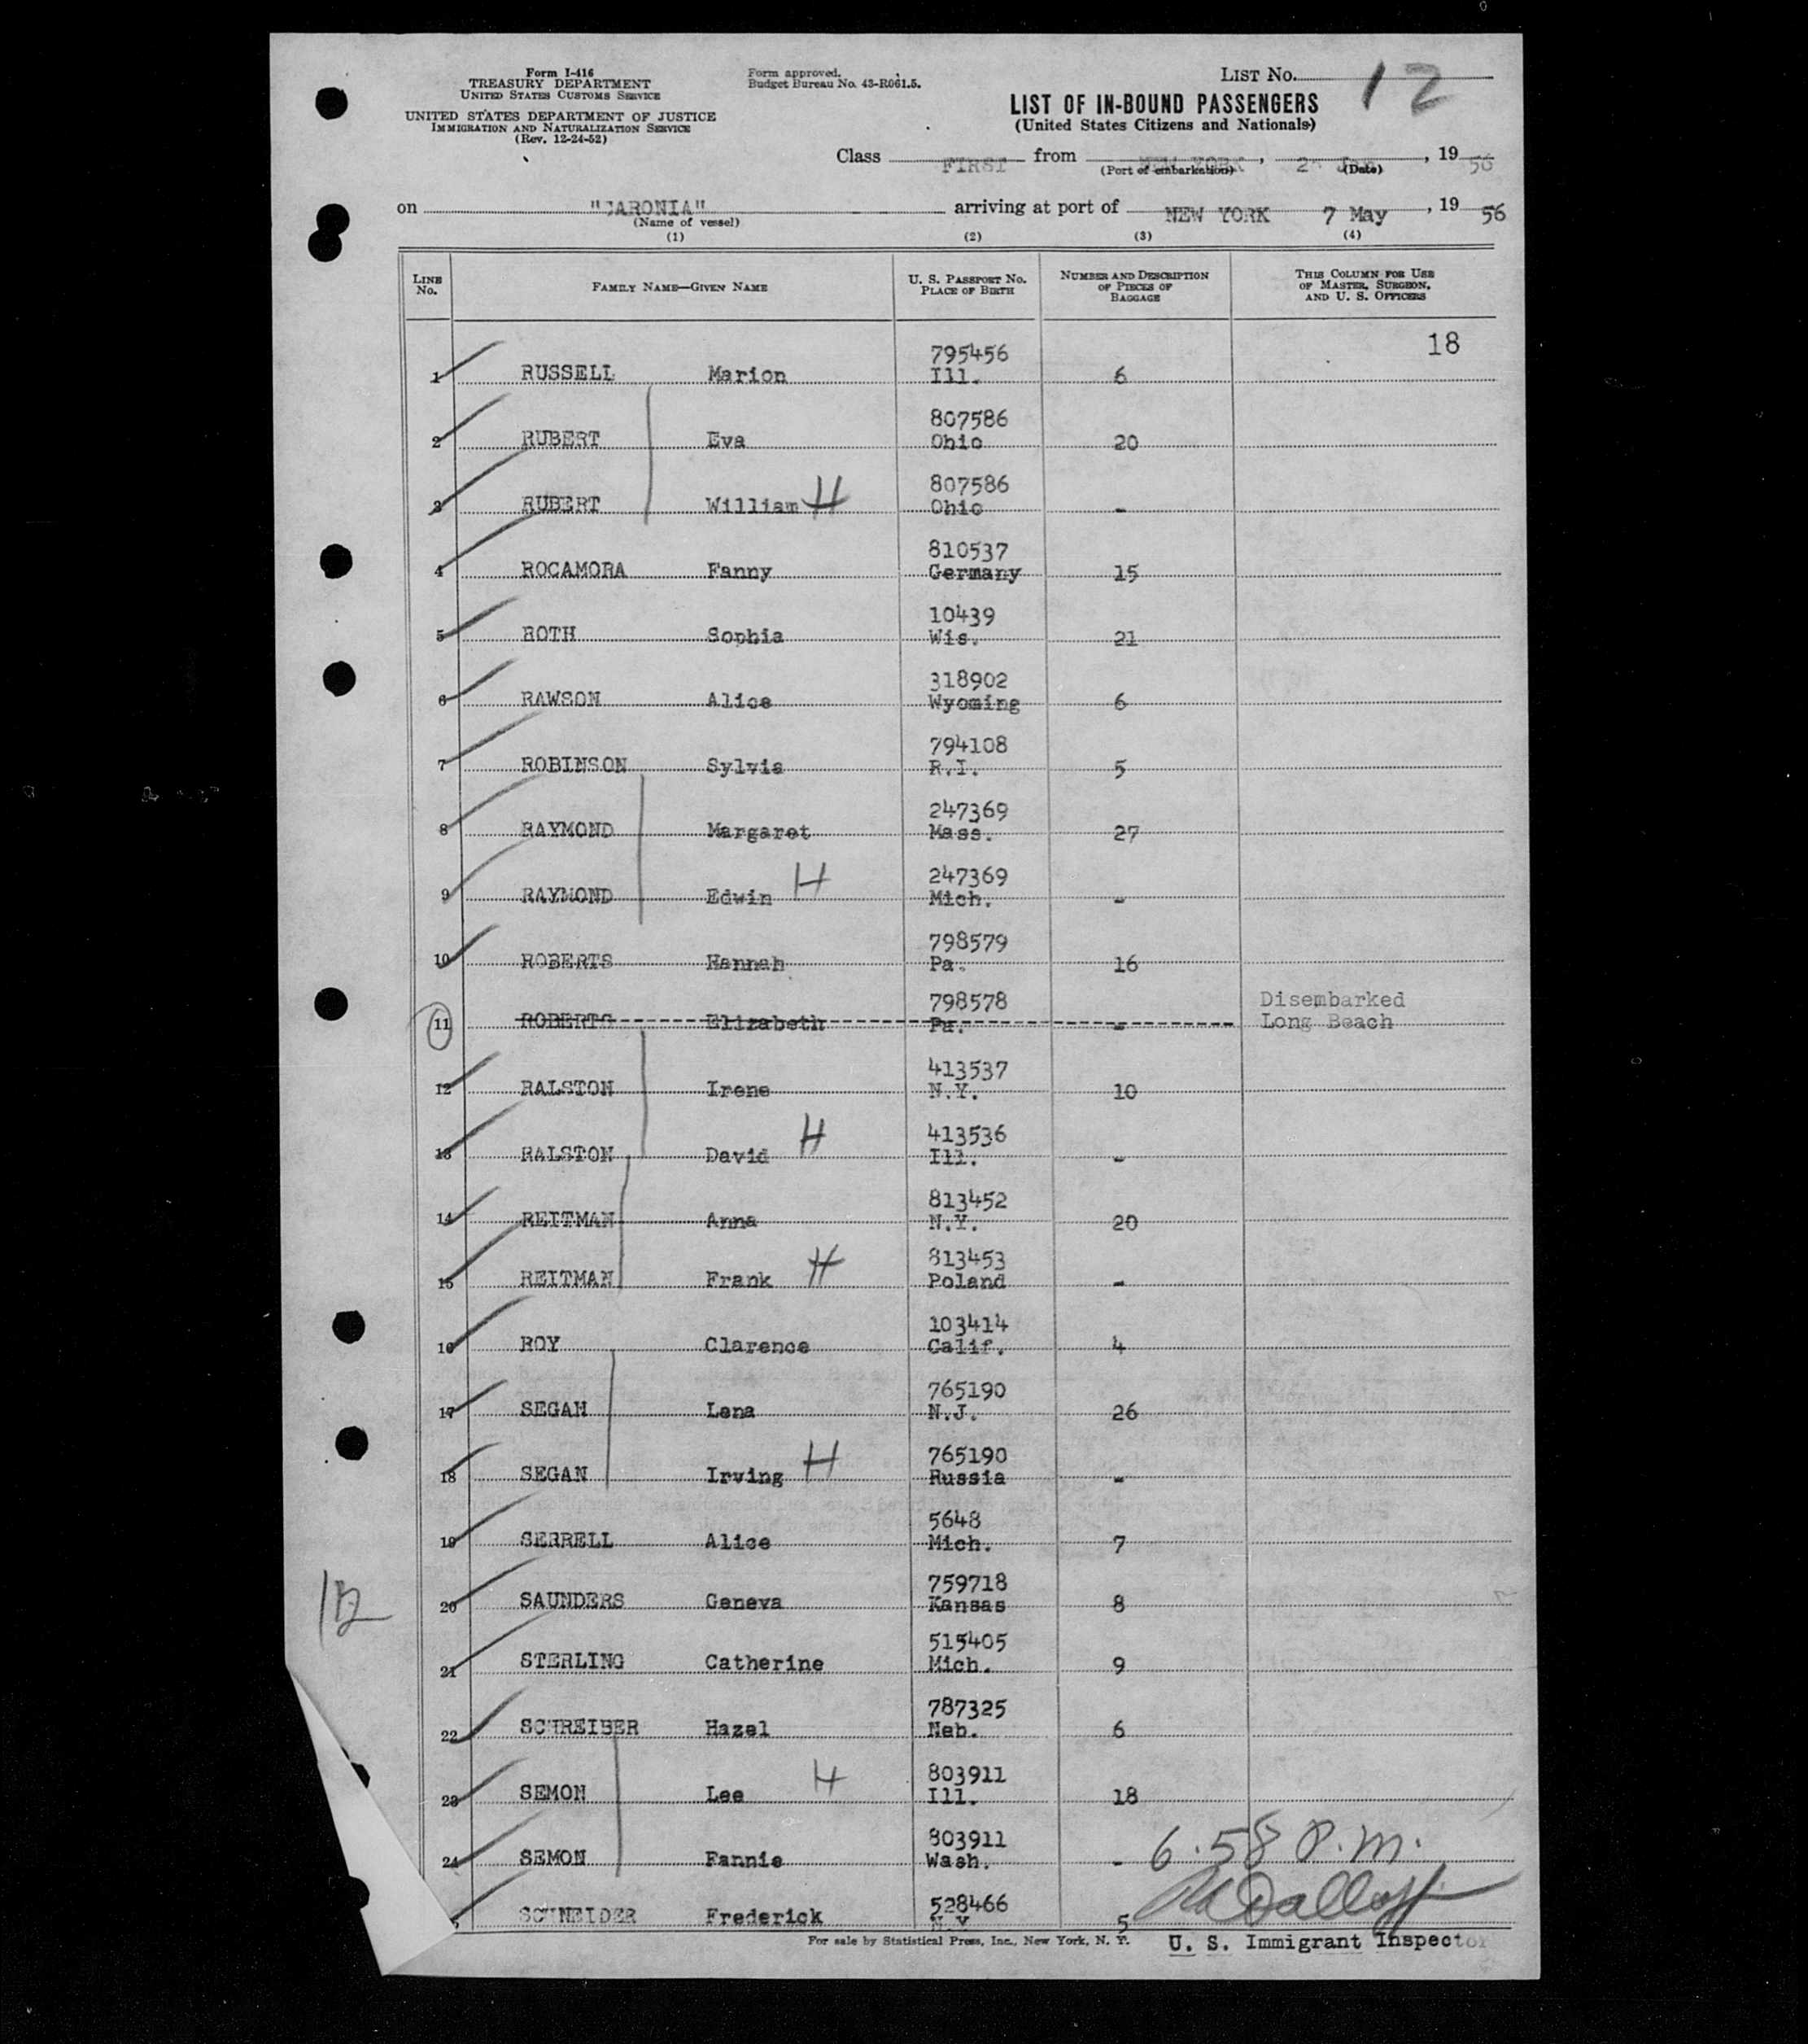 Form I-416
TREASURY DEPARTMENT
UNITED STATES CUSTOMS SERVICE
UNITED STATES DEPARTMENT OF JUSTICE
IMMIGRATION AND NATURALIZATION SERVICE
(Rev. 12-24-52)
Form approved.
Budget Bureau No. 43-R061.5.
LIST No. 12
LIST OF IN-BOUND PASSENGERS
(United States Citizens and Nationals)
Class FIRST from NEW YORK, Jan, 19 56
(Port of embarkation) (Date)
on "CARONIA" arriving at port of NEW YORK 7 May, 19 56
(Name of vessel)
(1) (2) (3) (4)
LINE No. FAMILY NAME—GIVEN NAME U. S. PASSPORT No. PLACE OF BIRTH NUMBER AND DESCRIPTION OF PIECES OF BAGGAGE THIS COLUMN FOR USE OF MASTER, SURGEON, AND U. S. OFFICERS
18
795456
1 RUSSELL Marion Ill. 6
807586
2 RUBERT Eva Ohio 20
807586
3 RUBERT William H Ohio -
810537
4 ROCAMORA Fanny Germany 15
10439
5 ROTH Sophia Wis. 21
318902
6 RAWSON Alice Wyoming 6
794108
7 ROBINSON Sylvia R.I. 5
247369
8 RAYMOND Margaret Mass. 27
247369
9 RAYMOND Edwin H Mich. -
798579
10 ROBERTS Hannah Pa. 16
798578 Disembarked
11 ROBERTS Elizabeth Pa. - Long Beach
413537
12 RALSTON Irene N.Y. 10
413536
13 RALSTON David H Ill. -
813452
14 REITMAN Anna N.Y. 20
813453
15 REITMAN Frank H Poland -
103414
16 ROY Clarence Calif. 4
765190
17 SEGAN Lena N.J. 26
765190
18 SEGAN Irving H Russia -
5648
19 SERRELL Alice Mich. 7
759718
20 SAUNDERS Geneva Kansas 8
515405
21 STERLING Catherine Mich. 9
787325
22 SCHREIBER Hazel Neb. 6
803911
23 SEMON Lee H Ill. 18
803911
24 SEMON Fannie Wash. - 6.58 P.M.
528466
SCHNEIDER Frederick N.Y. 5
For sale by Statistical Press, Inc., New York, N. Y. U. S. Immigrant Inspector